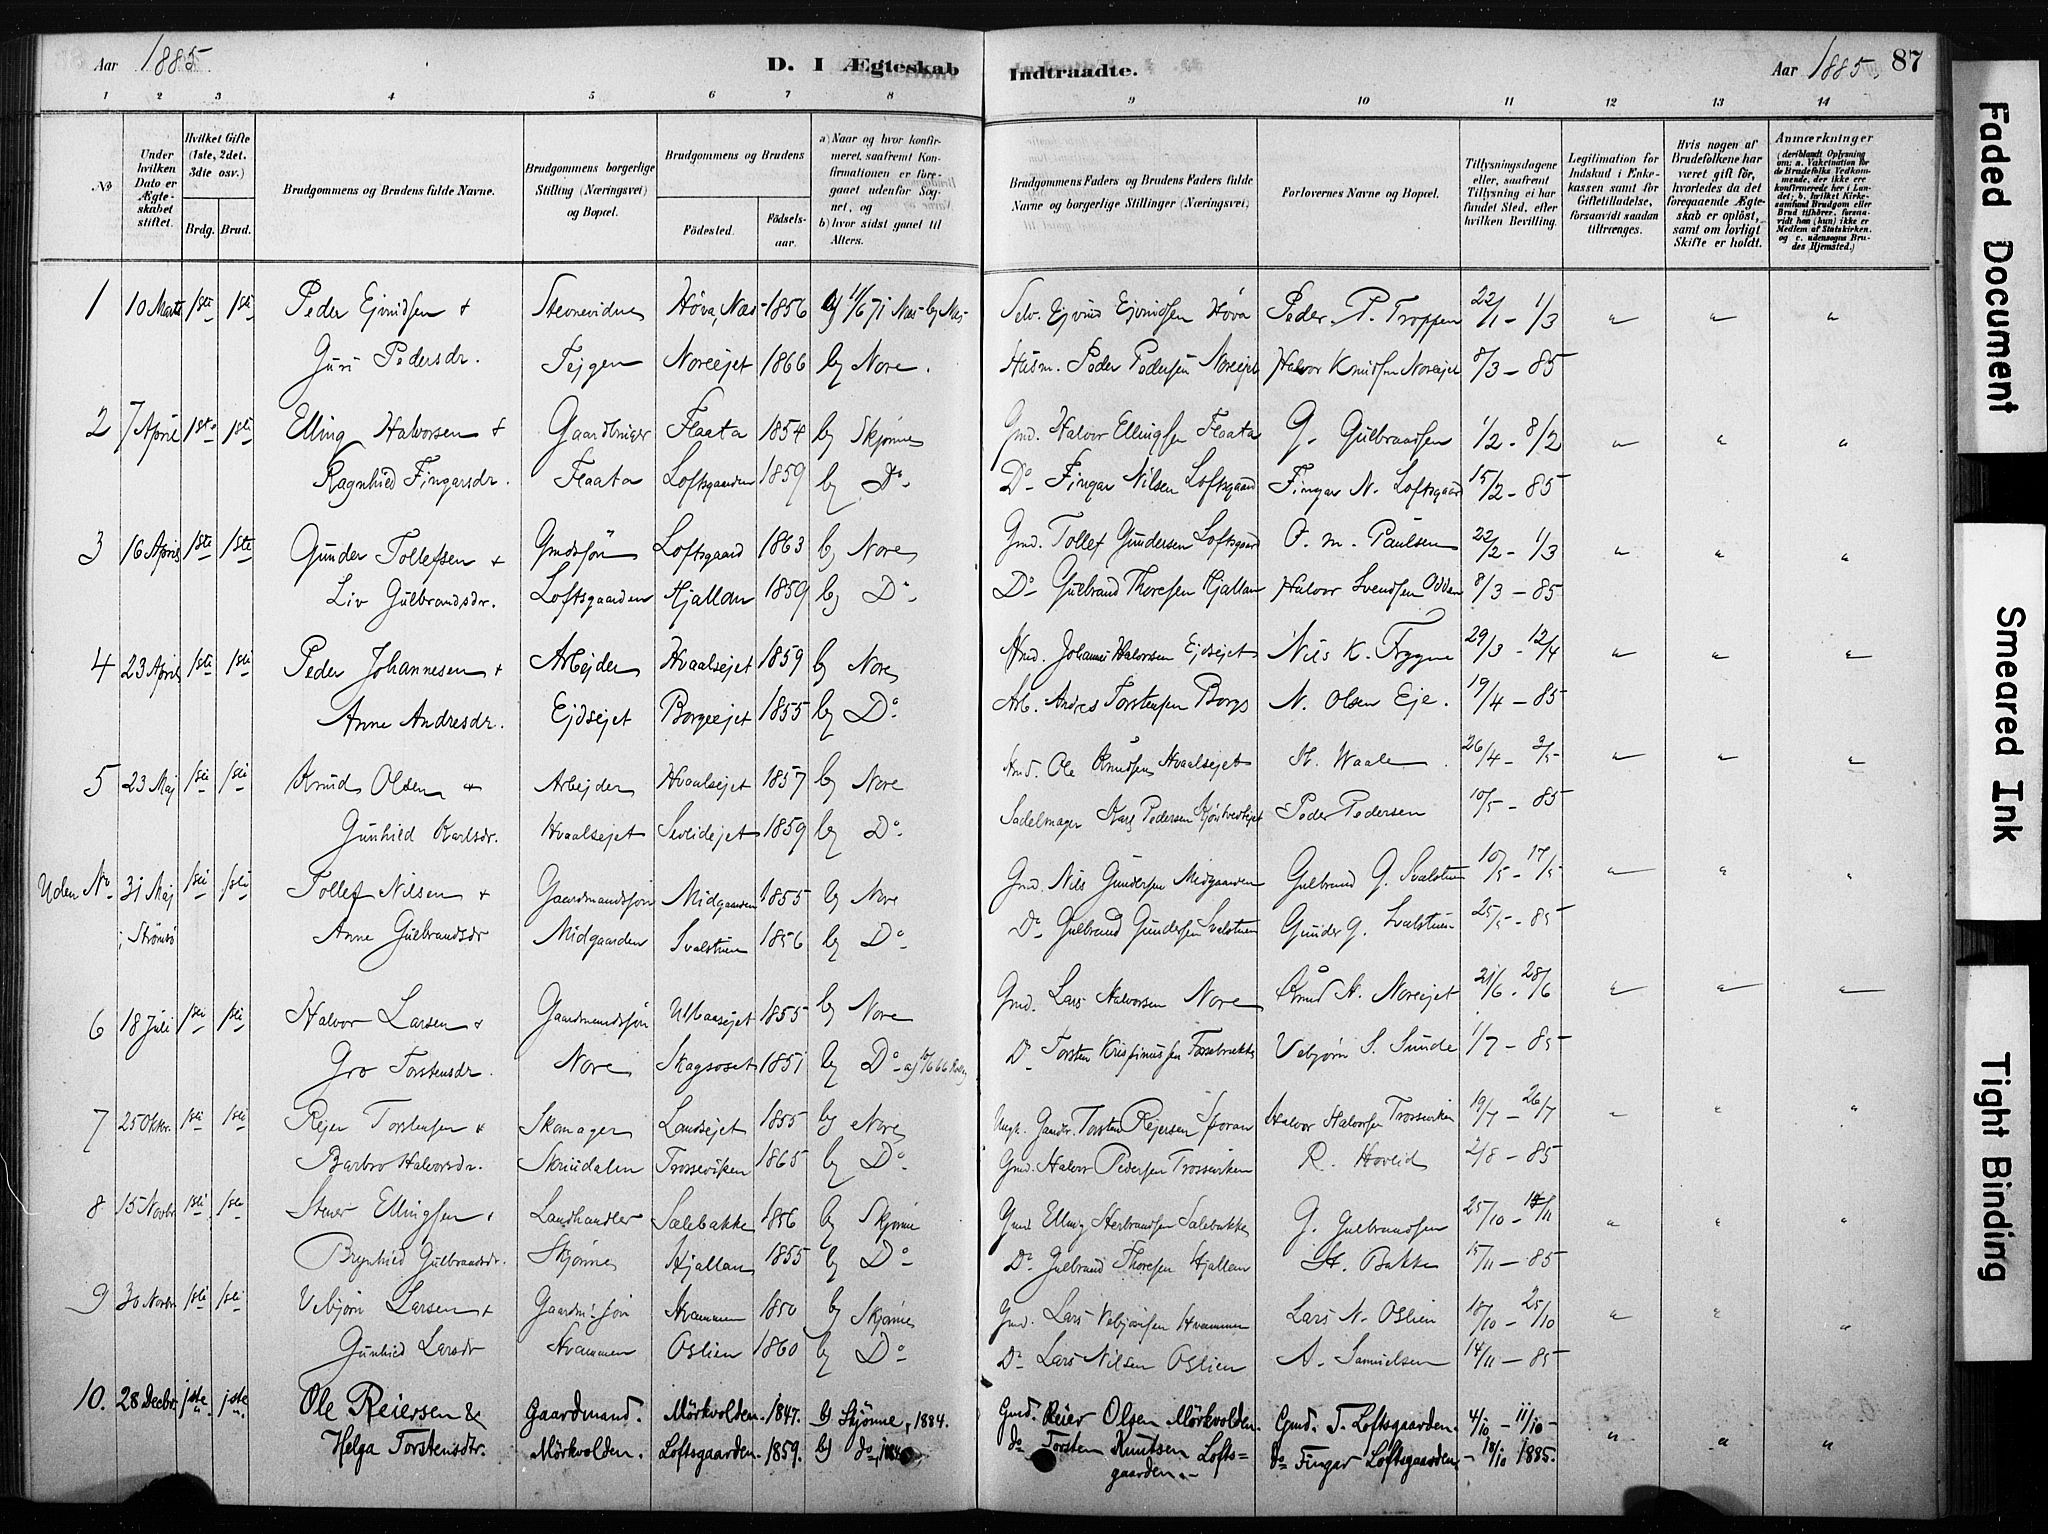 Aar 1885 D. I Ægteskab Indtraadte. Aar 1885. 87
1 2 3 4 5 6 7 8 9 10 11 12 13 14
No
Under hvilken Dato er Ægteskabet stiftet.
Hvilket Gifte (1ste, 2det, 3die osv.)
Brdg. Brud.
Brudgommens og Brudens fulde Navne.
Brudgommens borgerlige Stilling (Næringsvei) og Bopæl.
Brudgommens og Brudens
Födested. Födselsaar.
a) Naar og hvor konfirmeret, saafremt Konfirmationen er foregaaet udenfor Sognet, og
b) hvor sidst gaaet til Alters.
Brudgommens Faders og Brudens Faders fulde Navne og borgerlige Stillinger (Næringsvei)
Forlovernes Navne og Bopæl.
Tillysningsdagene eller, saafremt Tillysning ei har fundet Sted, efter hvilken Bevilling.
Legitimation for Indskud i Enkekassen samt for Giftetilladelse, forsaavidt saadan tiltrænges.
Hvis nogen af Brudefolkene har været gift för, hvorledes da det foregaaende Ægteskab er oplöst, samt om lovligt Skifte er holdt.
Anmærkninger
(deriblandt Oplysning om: a. Vakcination for de Brudefolks Vedkommende, der ikke ere konfirmerede her i Landet; b. hvilket Kirkesamfund Brudgom eller Brud tilhörer, forsaavidt han (hun) ikke er Medlem af Statskirken, og c. udensogns Brudes Hjemsted.)
1 10 Marts 1ste 1ste Peder Ejvindsen + Høva, Næs 1856 Selv. Ejvind Ejvindsen Høva Peder P. Troppen 22/1 - 1/3 " " "
Guri Pedersdr. Tejgen Noreejet 1866 b) Nore. Husm. Peder Pedersen Noreejet Halvor Knudsen Noreejet 8/3 - 85
2 7 April 1ste 1ste Elling Halvorsen + Gaardbruger Flaata 1854 b) Skjønne Gmd. Halvor Ellingsen Flaata G. Gulbrandsen 1/2 - 8/2 " " "
Ragnhild Fingarsdr. Flaata Loftsgaarden 1859 b) Do Do Fingar Nilsen Loftsgaard Fingar N. Loftsgaard 15/2 - 85
3 16 April 1ste 1ste Gunder Tollefsen + Gmdssøn Loftsgaard 1863 b) Nore Gmd. Tollef Gundersen Loftsgaard O. M. Paulsen 22/2 - 1/3 " " "
Liv Gulbrandsdr. Loftsgaarden Hjallan 1859 b) Do Do Gulbrand Thoresen Hjallan Halvor Svendsen Odden 8/3 - 85
4 23 April 1ste 1ste Peder Johannesen + Arbejder Hvaalsejet 1859 b) Nore Hmd. Johannes Halvorsen Ejdsejet Nils K. Frygne 29/3 - 12/4 " " "
Anne Andresdr. Ejdsejet Borgeejet 1855 b) Do Arb. Andres Torstensen Borge N. Olsen Eje. 19/4 - 85
5 23 Maj 1ste 1ste Knud Olsen + Arbejder Hvaalsejet 1857 b) Nore Hmd. Ole Knudsen Hvaalsejet H. Waale 26/4 - 3/5 " " "
Gunhild Karlsdr. Hvaalsejet Seveidejet 1859 b) Do Sadelmager Karl Pedersen Peder Pedersen 10/5 - 85
Uden No 31 Maj 1ste 1ste Tollef Nilsen + Gaardmandssøn Midgaarden 1855 b) Nore Gmd. Nils Gundersen Midgaarden Gulbrand G. Svalstuen 10/5 - 17/5 " " "
i Strømbø Anne Gulbrandsdr Midgaarden Svalstuen 1856 b) Do Do Gulbrand Gundersen Svalstuen Gunder G. Svalstuen 25/5 - 85
6 18 Juli 1ste 1ste Halvor Larsen + Gaardmandssøn Ulbaasejet 1855 b) Nore Gmd. Lars Halvorsen Nore Knud H. Noreejet 21/6 - 28/6 " " "
Gro Torstensdr. Nore Skagsoset 1851 b) Do Do Torsten Vebjørn S. Sunde 1/7 - 85
7 25 Oktbr. 1ste 1ste Rejer Torstensen + Skomager Landsejet 1855 b) Nore Ungk. Gaardbr. Torsten Rejersen Sporan Halvor Halvorsen Trosseviken 19/7 - 26/7 " " "
Barbro Halvorsdr. Skuudalen Trosseviken 1865 b) Do Gmd. Halvor Pedersen Trosseviken R. Hovlid 2/8 - 85
8 15 Novbr 1ste 1ste Stener Ellingsen + Landhandler Sælebakke 1856 b) Skjønne Gmd Elling Herbrandsen Sælebakke G. Gulbrandsen 25/10 - 1/11 " " "
Brynhild Gulbrandsdr. Skjønne Hjallan 1855 b) Do Do Gulbrand Thoresen Hjallan H. Bakke 15/11 - 85
9 30 Novbr 1ste 1ste Vebjørn Larsen + Gaardm.søn Hvammen 1850 b) Skjønne Gmd. Lars Vebjørnsen Hvammen Lars N. Oslien 18/10 - 25/10 " " "
Gunhild Larsdr Hvammen Oslien 1860 b) Do Do Lars Nilsen Oslien A. Samuelsen 14/11 - 85
10. 28 Decbr. 1ste. 1ste. Ole Reiersen & Gaardmand. Mörkvolden. 1847. b) Skjönne, 1884. Gmd. Reier Olsen Mörkvolden. Gmd. T. Loftsgaarden. 4/10 - 11/10 -
Helga Torstensdtr. Mörkvolden. Loftsgaarden. 1859. b) do, 1884 do Torsten Knutsen Lofts= do Fingar Loftsgaarden - 18/10 1885. " " "
gaarden.-
Faded Document
Smeared Ink
Tight Binding